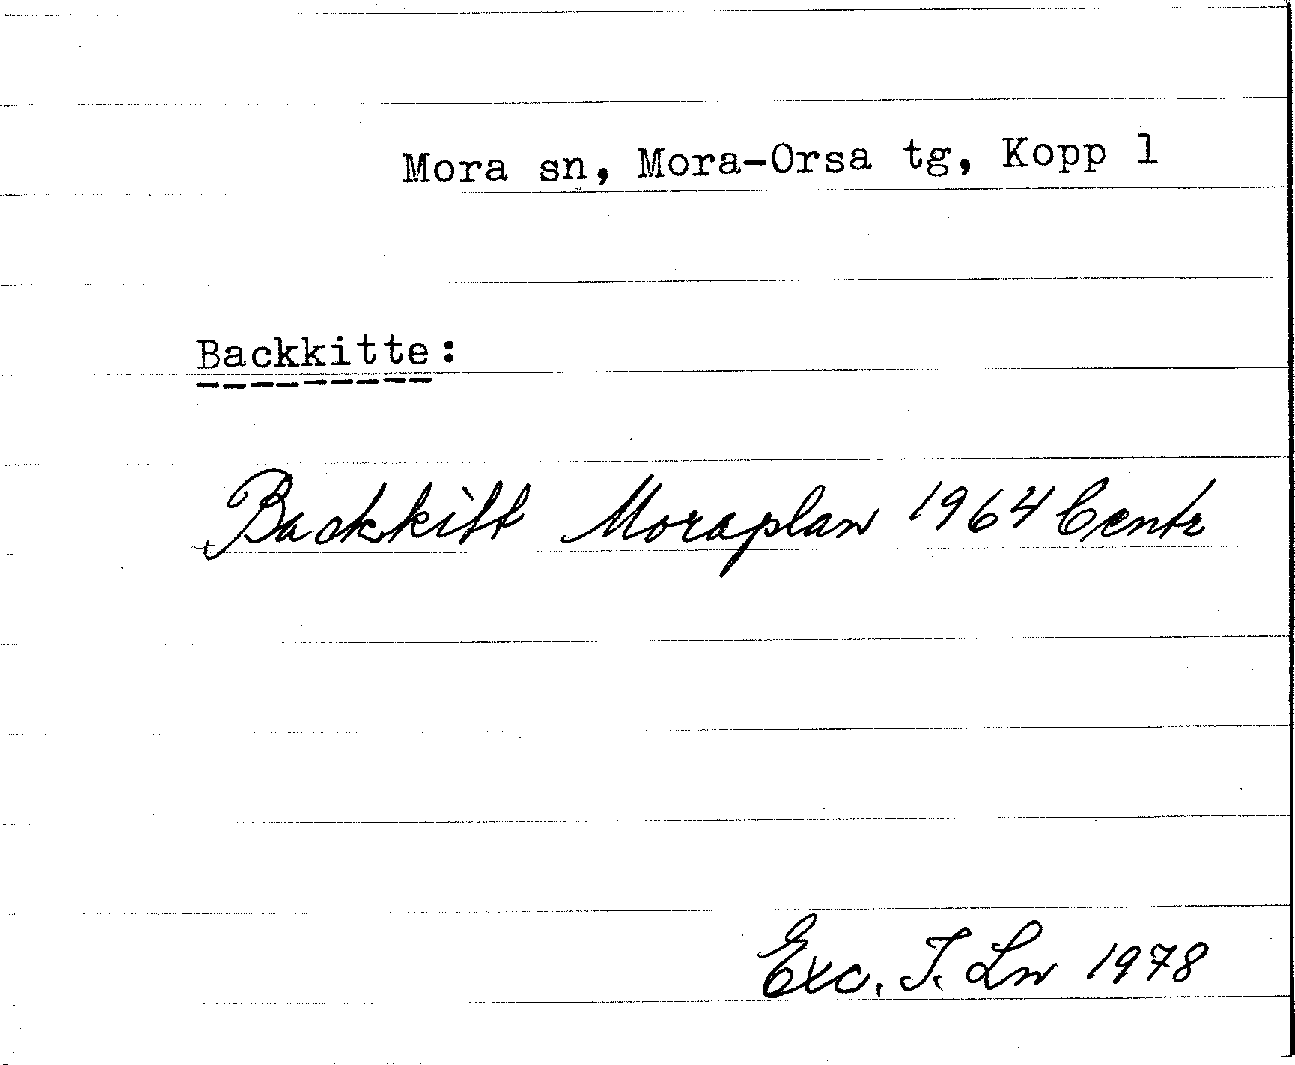 Mora sn, Mora-Orsa tg, Kopp l
Backkitte:
Backkitt Moraplan 1964 Centr
Exc. T. Ln 1978